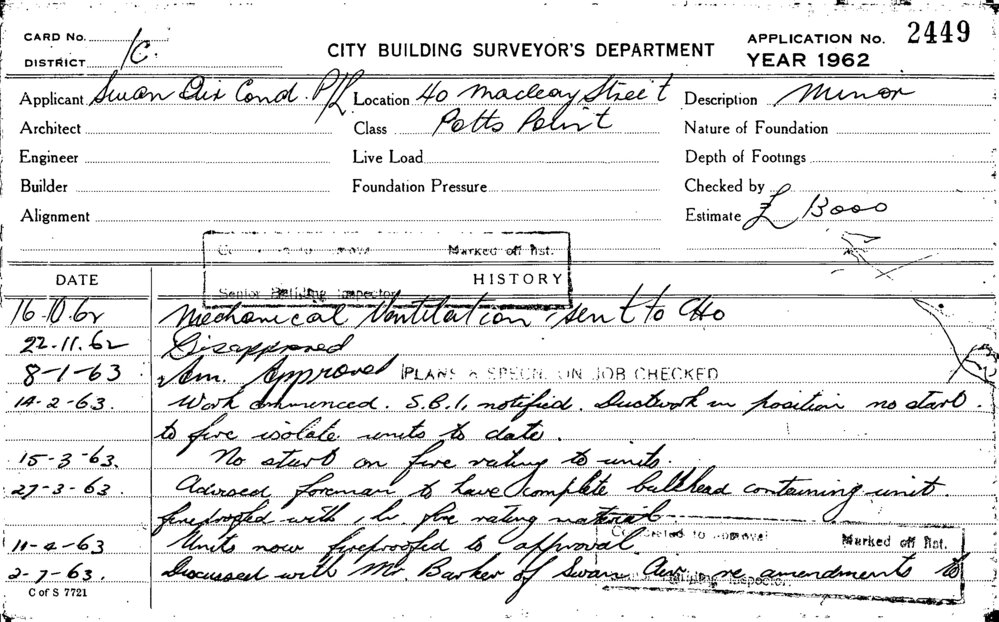 CARD No.
DISTRICT 1C.
CITY BUILDING SURVEYOR'S DEPARTMENT
APPLICATION No. 2449
YEAR 1962
Applicant Swan Air Cond. P/L Location 40 Macleay Street Description Minor
Architect Class Potts Point Nature of Foundation
Engineer Live Load Depth of Footings
Builder Foundation Pressure Checked by
Alignment Estimate £ 13000
Marked off list.
Senior Building Inspector
DATE HISTORY
16.10.62 Mechanical Ventilation sent to CHO
22.11.62 Disapproved
8-1-63 Am. Approved PLANS & SPECN. ON JOB CHECKED
14-2-63. Work commenced. S.B.I. notified. Ductwork in position no start
to fire isolate units to date.
15-3-63. No start on fire rating to units.
27-3-63. Advised foreman to have complete bulkhead containing unit
fireproofed with 1 hr. fire rating material
11-4-63 Units now fireproofed to approval.
Completed to approval Marked off list.
2-7-63. Discussed with Mr. Barker of Swan Air re amendments to
Building Inspector.
C of S 7721